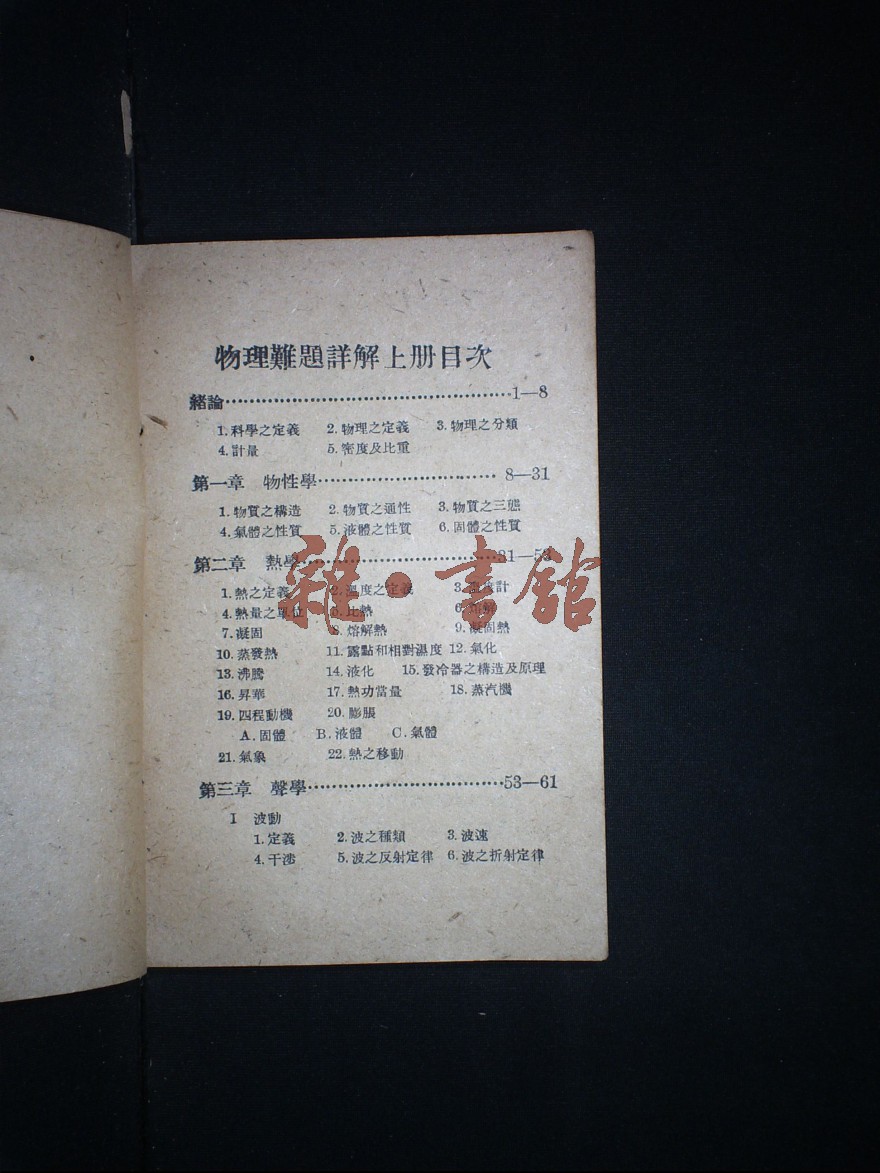 物理難題詳解上册目次
緒論……………………………………………1—8
1.科學之定義 2.物理之定義 3.物理之分類
4.計量 5.密度及比重
第一章 物性學…………………………… 8—31
1.物質之構造 2.物質之通性 3.物質之三態
4.氣體之性質 5.液體之性質 6.固體之性質
第二章 熱學………………………………31—53
1.熱之定義 2.溫度之定義 3.溫度計
4.熱量之單位 5.比熱
7.凝固 8.熔解熱 9.凝固熱
10.蒸發熱 11.露點和相對濕度 12.氣化
13.沸騰 14.液化 15.發冷器之構造及原理
16.昇華 17.熱功當量 18.蒸汽機
19.四程動機 20.膨脹
A.固體 B.液體 C.氣體
21.氣象 22.熱之移動
第三章 聲學………………………………53—61
I 波動
1.定義 2.波之種類 3.波速
4.干涉 5.波之反射定律 6.波之折射定律
雜·書館